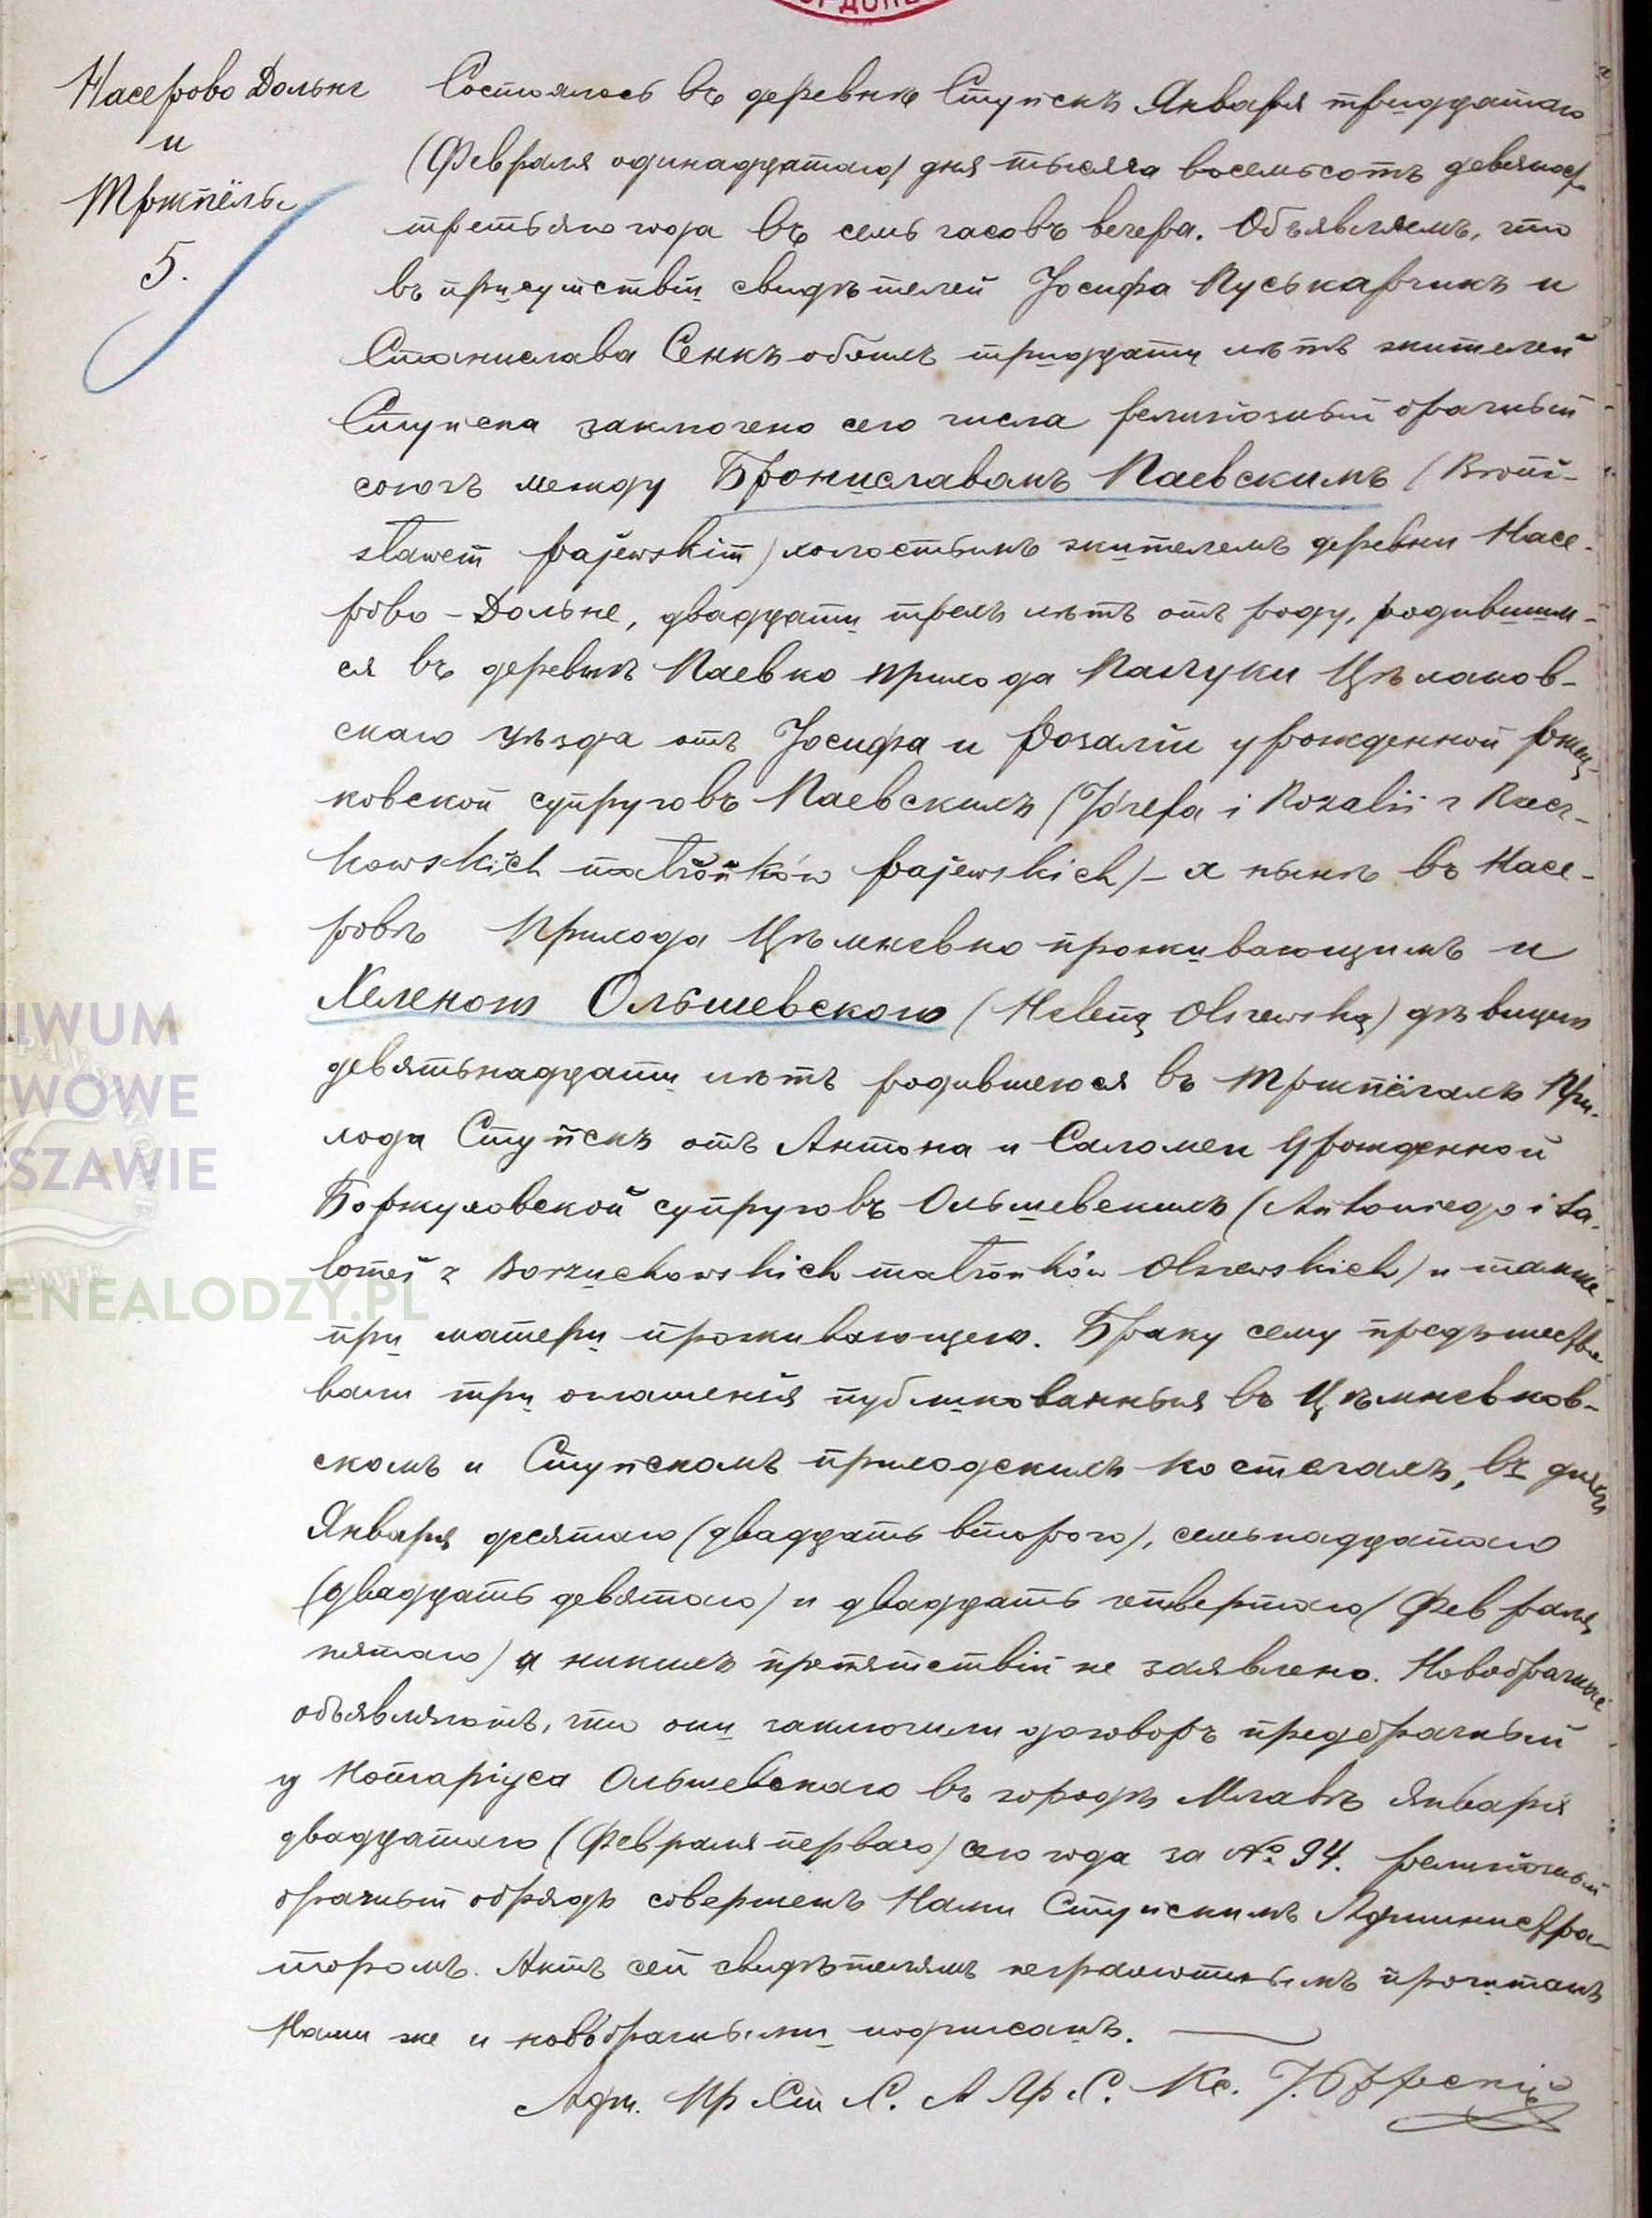 Насерово Дольне
и
Тржпёлы
5.
Состоялось въ деревнѣ Ступскъ Января тридцатаго
(Февраля одинадцатаго) дня тысяча восемьсотъ девяносто
третьяго года въ семь часовъ вечера. Объявляемъ, что
въ присутствіи свидѣтелей Іосифа Пуськарчикъ и
Станислава Сенкъ обоихъ тридцати лѣтъ жителей
Ступска заключено сего числа религіозный брачный
союзъ между Брониславомъ Паевскимъ (Broni-
sławem Pajewskim) холостымъ жителемъ деревни Насе-
рово-Дольне, двадцати трехъ лѣтъ отъ роду, родившим-
ся въ деревнѣ Паевко прихода Палуки Цѣханов-
скаго уѣзда отъ Іосифа и Розаліи урожденной Ржеч-
ковской супруговъ Паевскихъ (Józefa i Rozalii z Rzecz-
kowskich małżonków Pajewskich) - а нынѣ въ Насе-
ровѣ Прихода Цѣмневко проживающимъ и
Хеленою Ольшевскою (Heleną Olszewską) дѣвицею
девятьнадцати лѣтъ родившеюся въ Тржпёлахъ При-
хода Ступскъ отъ Антона и Саломеи Урожденной
Боржуховской супруговъ Ольшевскихъ (Antoniego i Sa-
lomei z Borzuchowskich małżonków Olszewskich) и тамже
при матери проживающею. Браку сему предшество-
вали три оглашенія публикованныя въ Цѣмневков-
скомъ и Ступскомъ приходскихъ костелахъ, въ дняхъ
Января десятаго (двадцать второго), семьнадцатаго
(двадцать девятаго) и двадцать четвертаго (Февраля
пятаго) и никихъ препятствій не заявлено. Новобрачные
объявляютъ, что они заключили договоръ предбрачный
у Нотаріуса Ольшевскаго въ городѣ Млавѣ Января
двадцатаго (Февраля перваго) сего года за № 94. Религіозный
брачный обрядъ совершенъ Нами Ступскимъ Администра-
торомъ. Актъ сей свидѣтелямъ неграмотнымъ прочитанъ
Нами же и новобрачными подписанъ.
Адм. Пр. Ст.